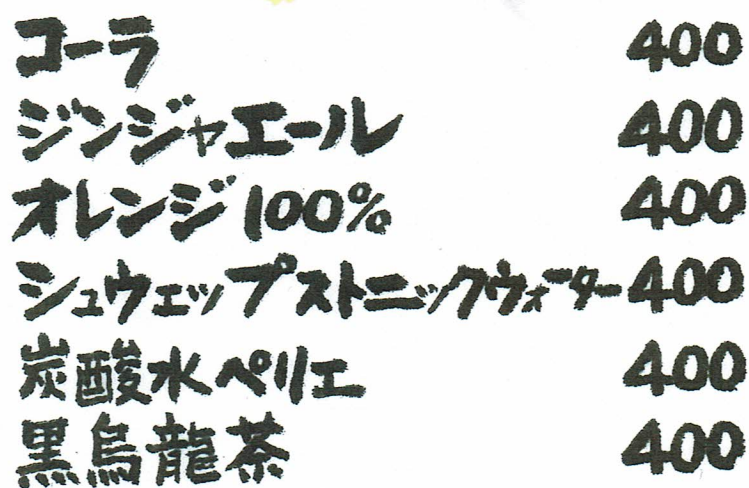 コーラ 400
ジンジャエール 400
オレンジ100% 400
シュウェップストニックウォーター 400
炭酸水ペリエ 400
黒烏龍茶 400